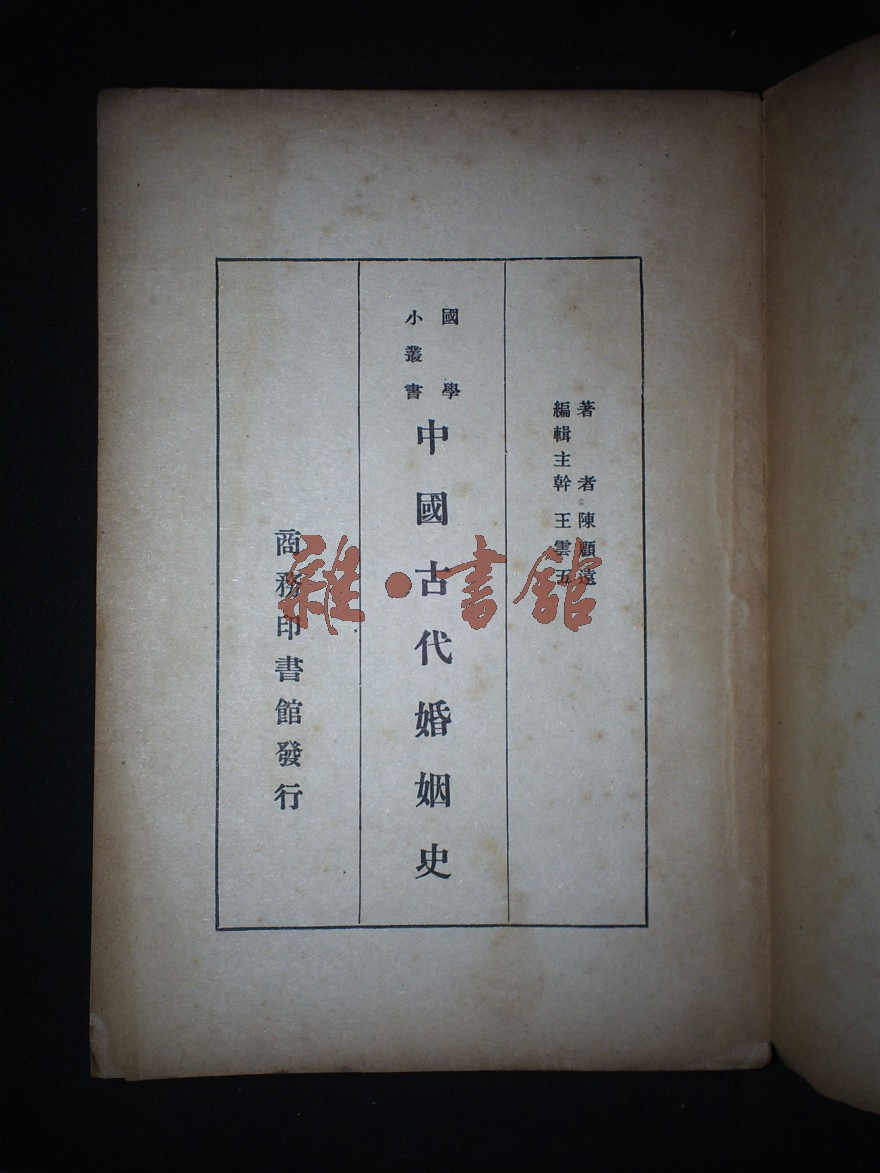 著者 陳顧遠
編輯主幹 王雲五
國學
小叢書
中國古代婚姻史
商務印書館發行
雜·書館